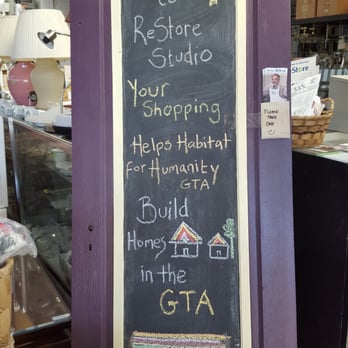 to
ReStore
Studio
Your
Shopping
Helps Habitat
for Humanity
GTA
Build
Homes
in the
GTA
Please
Take
One